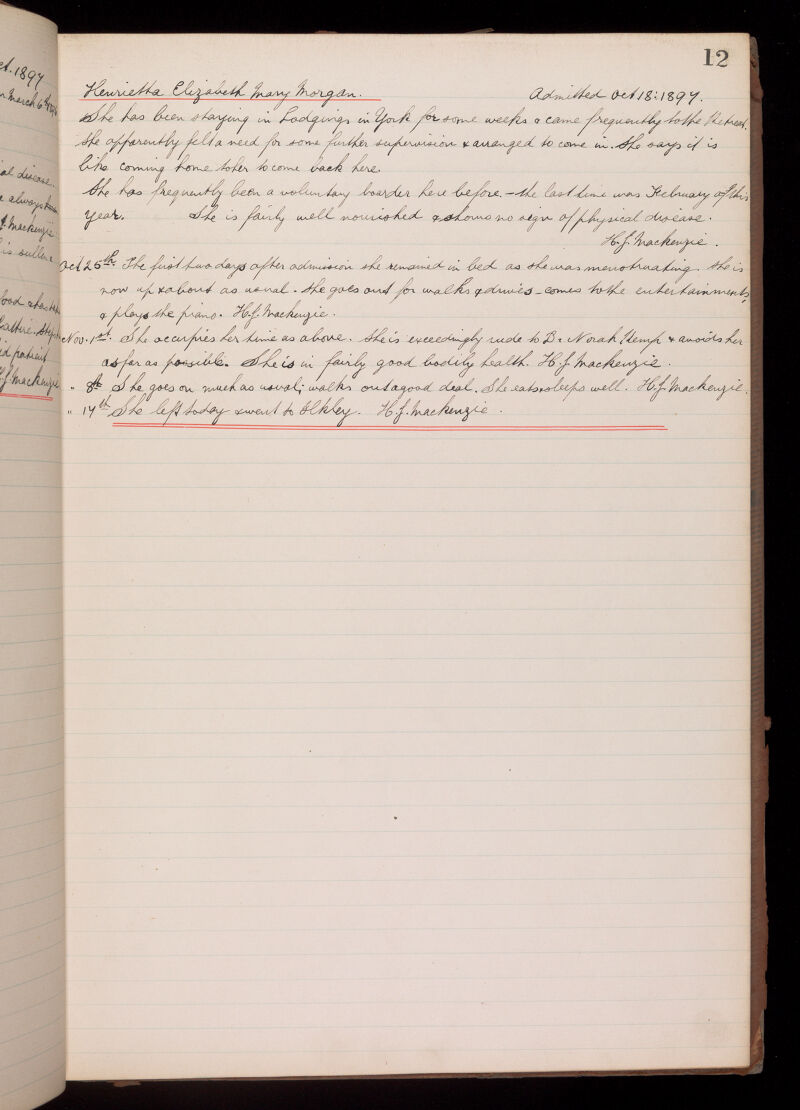 12
Henrietta Elizabeth Mary Morgan. Admitted Oct 18: 1897.
She has been staying in Lodgings in York for some weeks & came frequently to the Retreat.
She apparently felt a need for some further supervision & arranged to come in. She says it is
like coming home to her to come back here.
She has frequently been a voluntary boarder here before. – the last time was February of this
year. She is fairly well nourished & shows no sign of physical disease.
H.J. Mackenzie.
Oct 25th. The first two days after admission she remained in bed as she was menstruating. She is
now up & about as usual. She goes out for walks & drives – comes to the entertainments,
& plays the piano. H.J. Mackenzie.
Nov. 1st. She occupies her time as above. She is exceedingly rude to D. Norah Kemp & avoids her
as far as possible. She is in fairly good bodily health. H.J. Mackenzie.
" 8th She goes on much as usual; walks out a good deal. She eats & sleeps well. H.J. Mackenzie.
" 14th She left today & went to Ilkley. H.J. Mackenzie.
ct. 1897
March 6th
al disease.
always
Mackenzie
is sullen
food &
id patient
H.J. Mackenzie